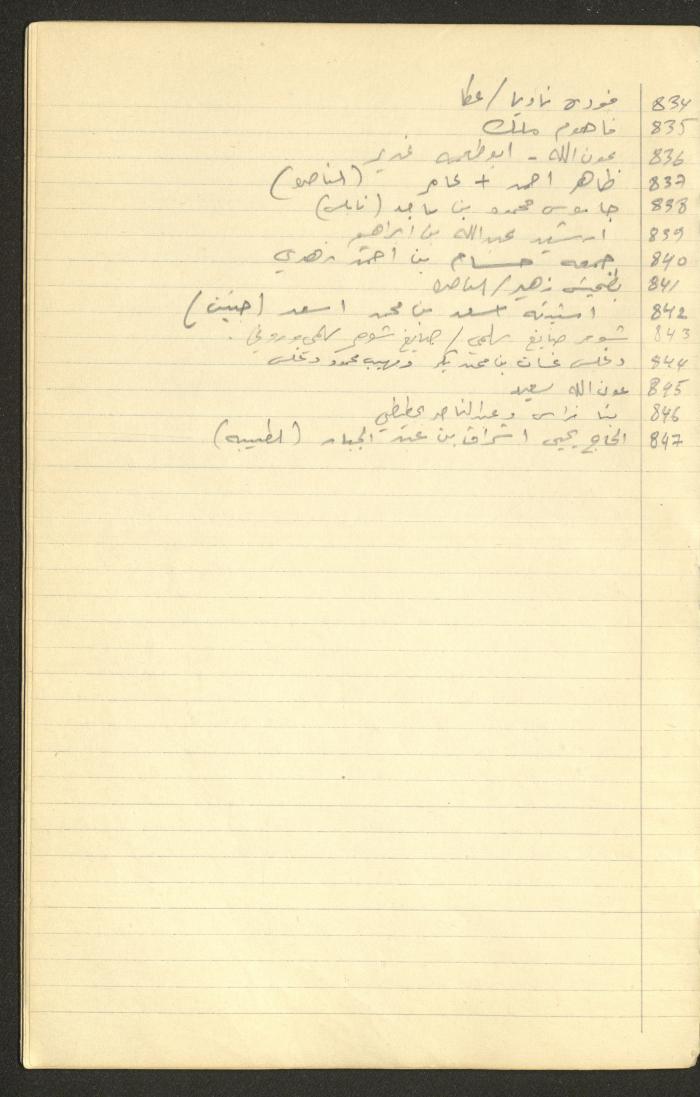 834 فوده ناديا / عطا
835 فاهوم ملك
836 عون الله - ابو طعمه غدير
837 ظاهر احمد + (الناصره)
838 جاموس محمود بن ماجد (نابلس)
839 ارشيد عبدالله بن ابراهيم
840 جمعه حسام بن احمد زهدي
841 زهير / الناصره
842 اسعد بن محمد اسعد (جنين)
843 شومر صايغ سلمى / صايغ شومر سلمى وروني
844 دغلس غسان بن محمد بكر ومهيب محمود دغلس
845 عون الله سعيد
846 بنا فراس وعبد الناصر
847 الحاج يحيى اشراق بن عبد الجبار (الطيبه)